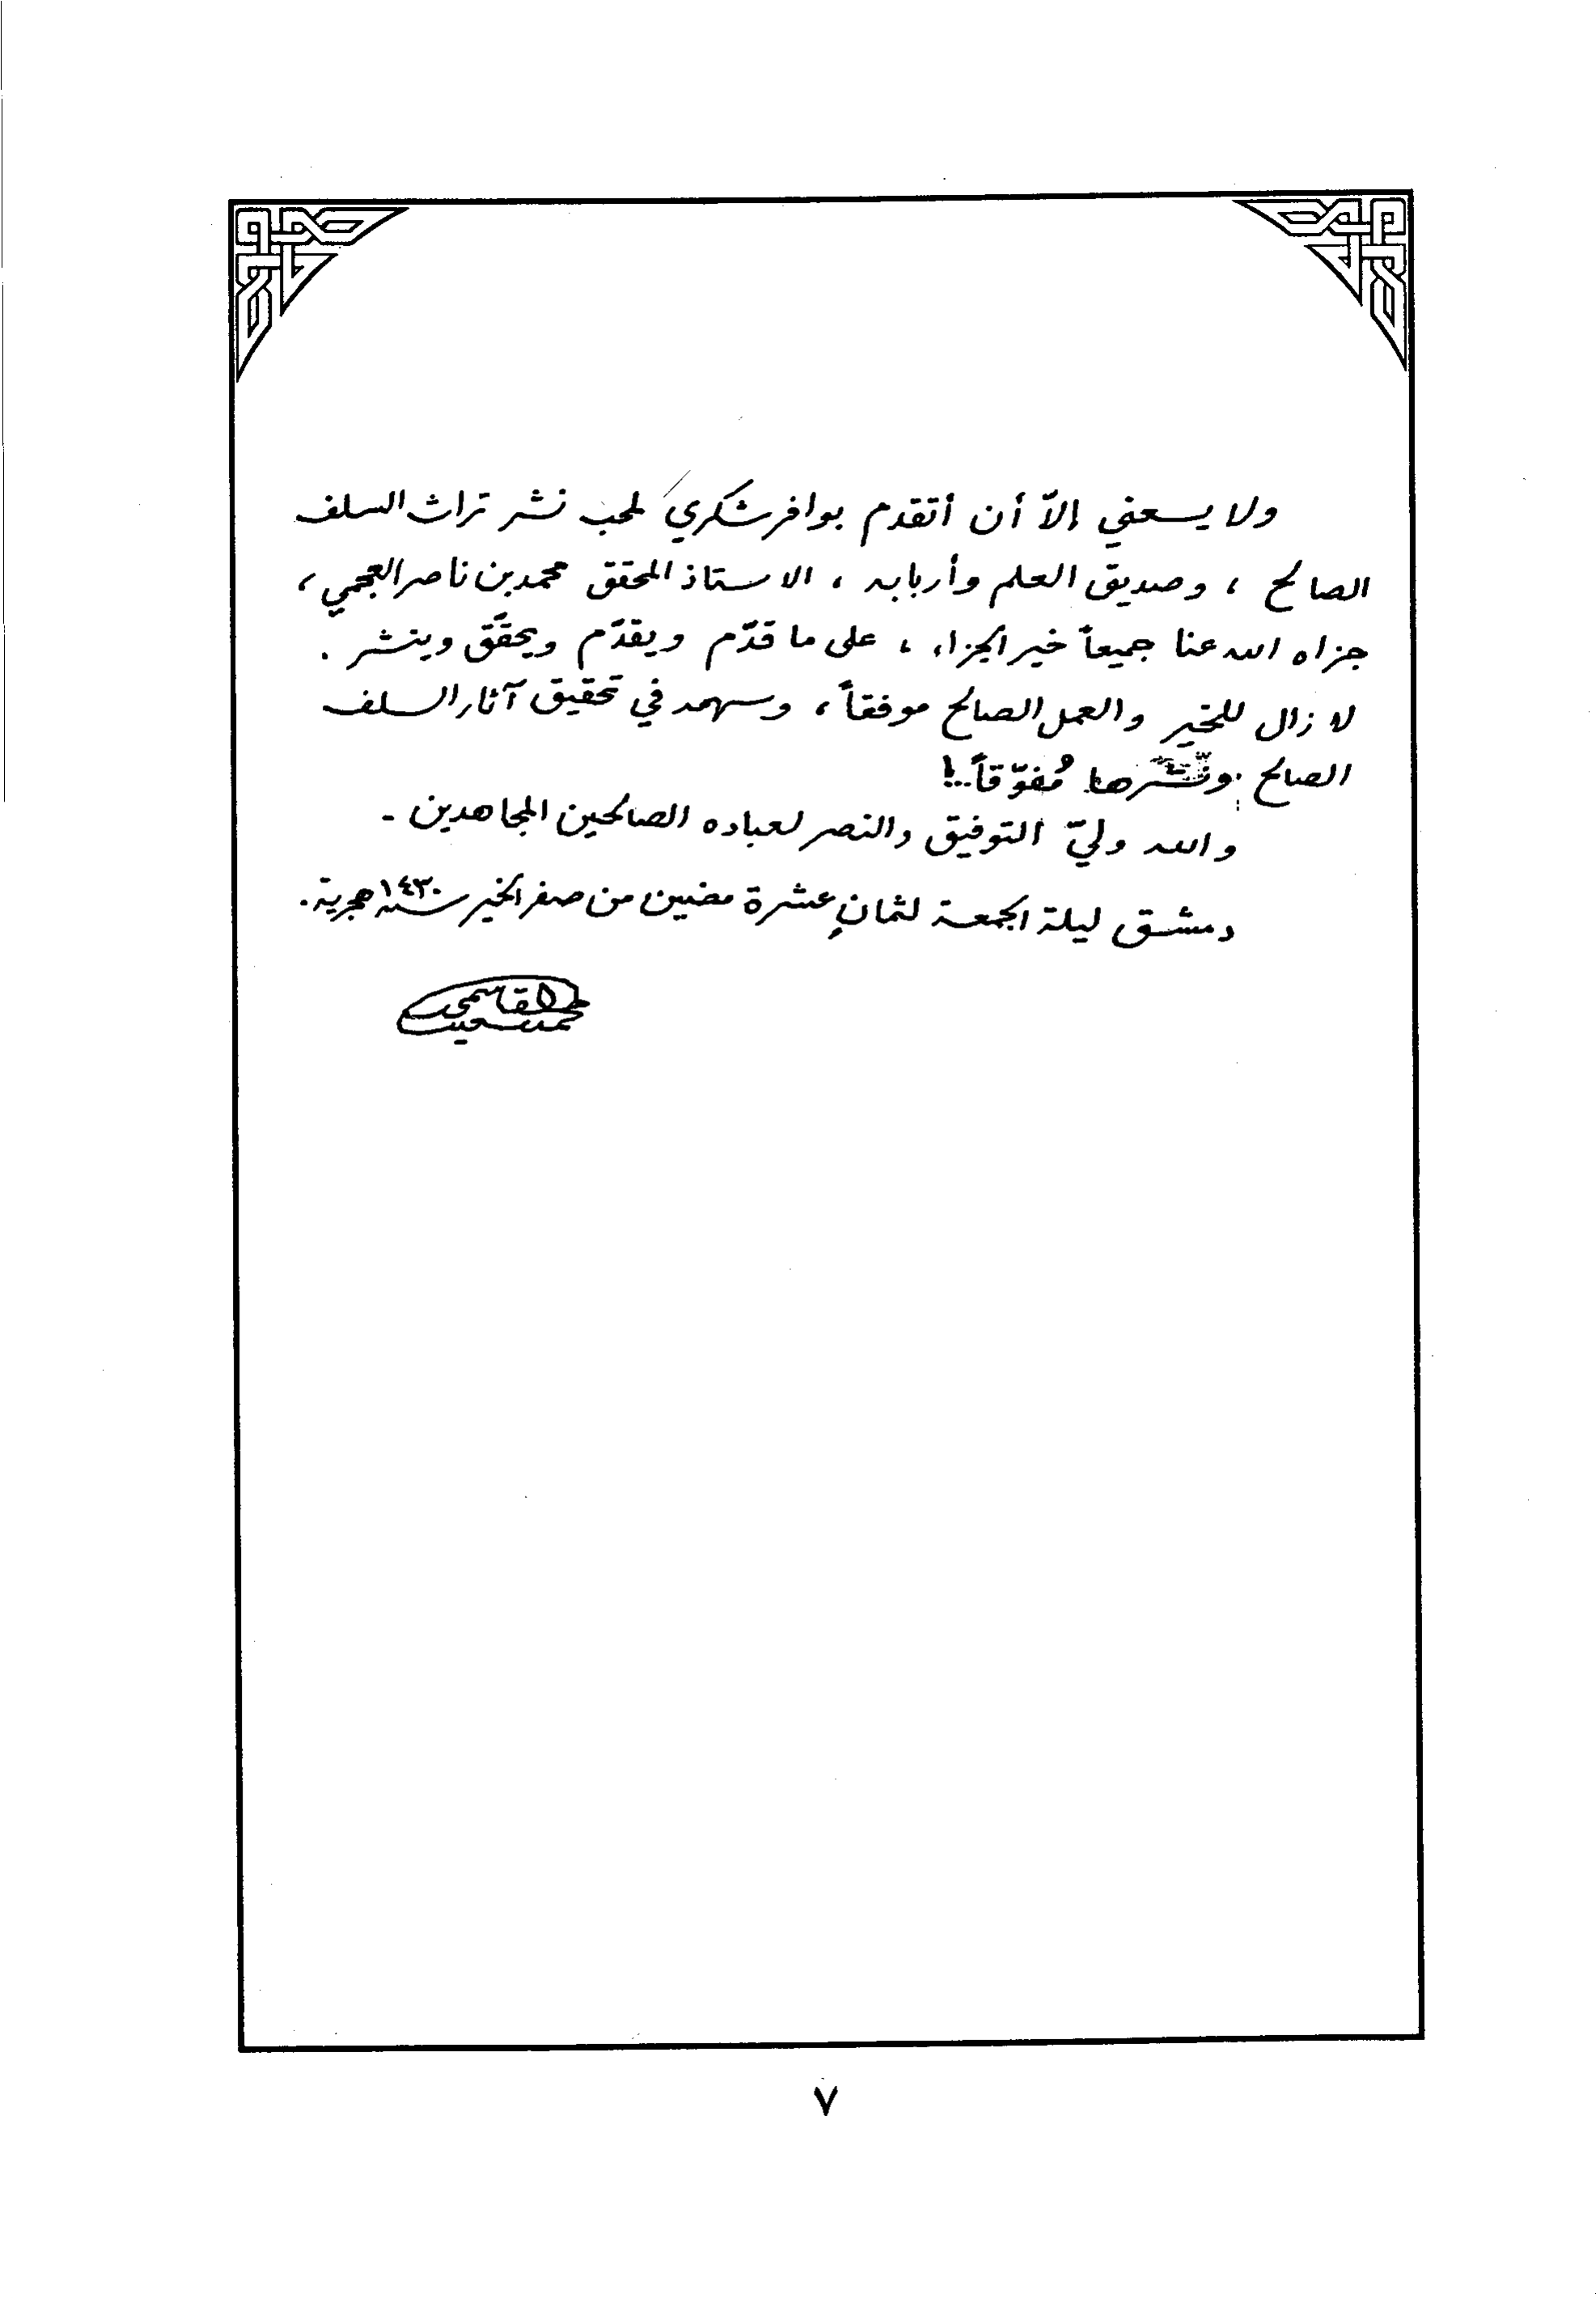 ولا يسعني إلاّ أن أتقدم بوافر شكري لمحب نشر تراث السلف
الصالح ، وصديق العلم وأربابه ، الاستاذ المحقق محمد بن ناصر العجمي ،
جزاه الله عنا جميعاً خير الجزاء ، على ما قدّم ويقدّم ويحقّق وينشر .
لا زال للخير والعمل الصالح موفقاً ، وسهمه في تحقيق آثار السلف
الصالح ونشرها مُفوّقاً..!
والله وليّ التوفيق والنصر لعباده الصالحين المجاهدين -
دمشق ليلة الجمعة لثمانِ عشرة مضين من صفر الخير سنة ١٤٣٠ هجرية .
محمد سعيد القاسمي
٧